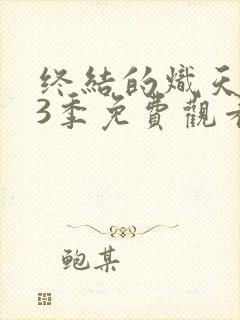 终結的熾天
3季免費觀看
鲍某